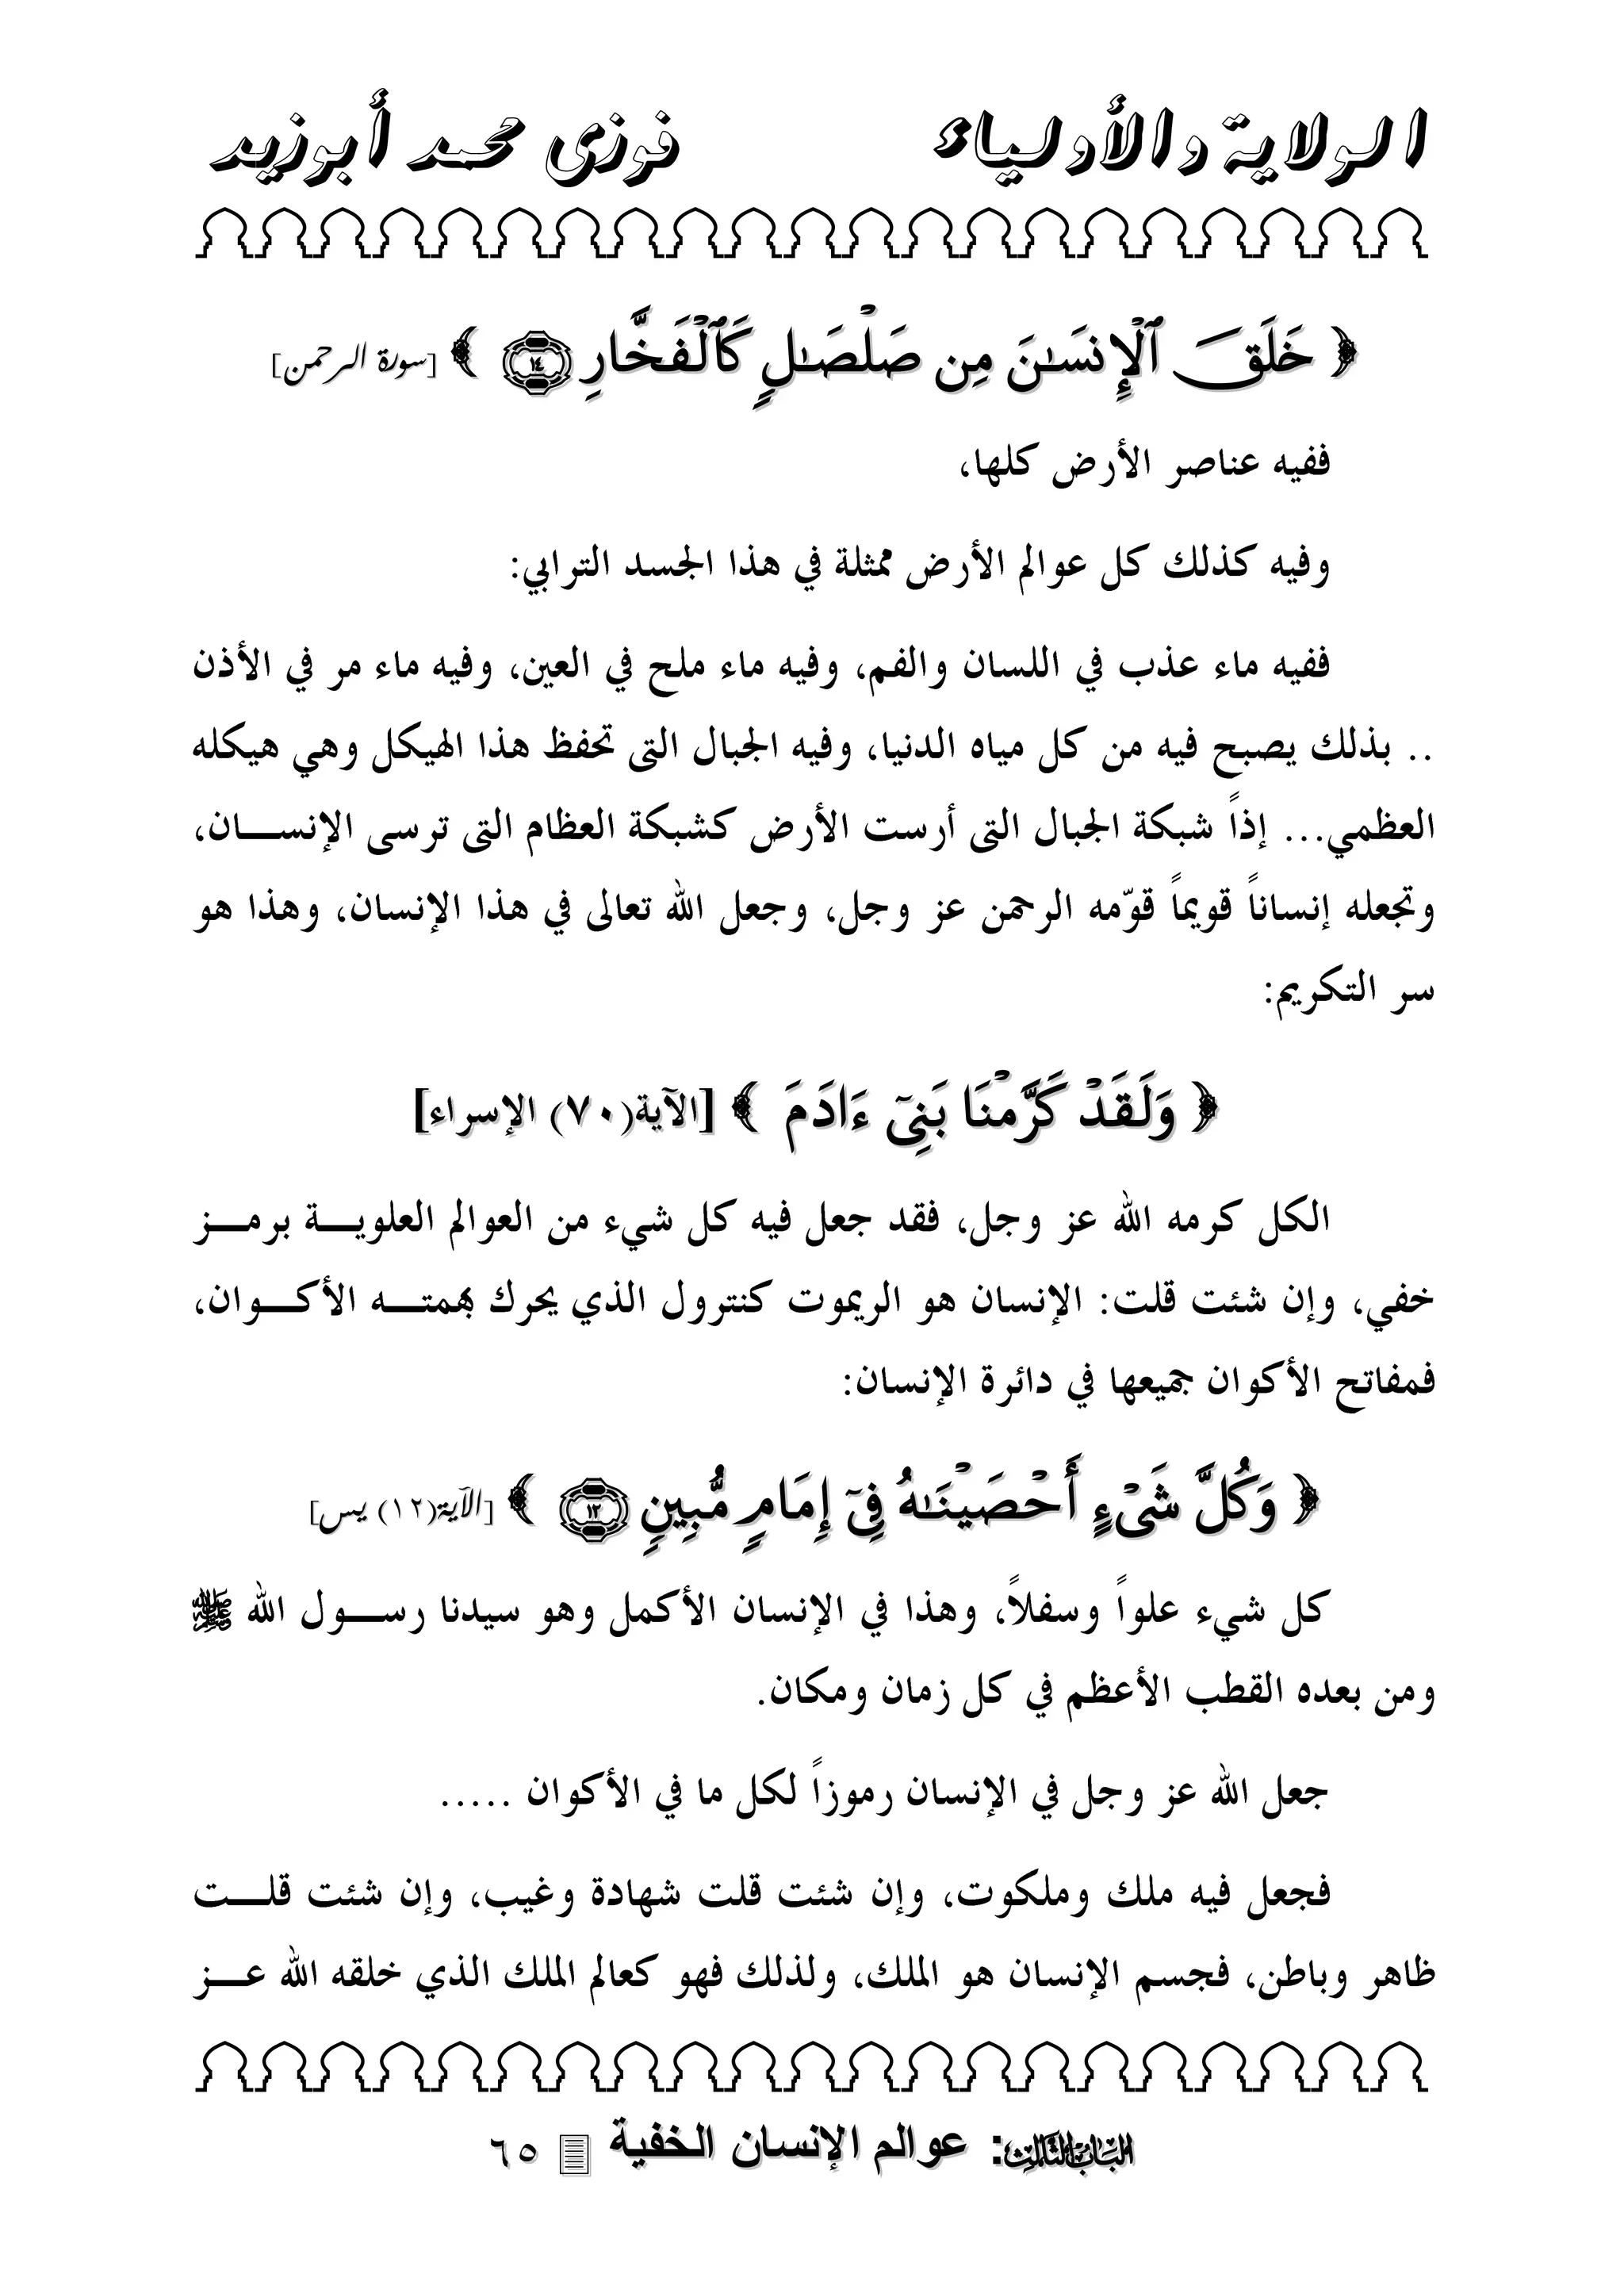 الولاية والأولياء فوزى محمد أبوزيد
﴿ خَلَقَ ٱلْإِنسَـٰنَ مِن صَلْصَـٰلٍ كَٱلْفَخَّارِ ١٤ ﴾ [سورة الرحمن]
ففيه عناصر الأرض كلها،
وفيه كذلك كل عوالم الأرض ممثلة في هذا الجسد الترابي:
ففيه ماء عذب في اللسان والفم، وفيه ماء ملح في العين، وفيه ماء مر في الأذن
.. بذلك يصبح فيه من كل مياه الدنيا، وفيه الجبال التى تحفظ هذا الهيكل وهي هيكله
العظمي... إذاً شبكة الجبال التى أرست الأرض كشبكة العظام التى ترسى الإنســـان،
وتجعله إنساناً قويماً قوّمه الرحمن عز وجل، وجعل الله تعالى في هذا الإنسان، وهذا هو
سر التكريم:
﴿ وَلَقَدْ كَرَّمْنَا بَنِىٓ ءَادَمَ ﴾ [الآية(٧٠) الإسراء]
الكل كرمه الله عز وجل، فقد جعل فيه كل شيء من العوالم العلويـــة برمـــز
خفي، وإن شئت قلت: الإنسان هو الريموت كنترول الذي يحرك بهمتـــه الأكـــوان،
فمفاتح الأكوان جميعها في دائرة الإنسان:
﴿ وَكُلَّ شَىْءٍ أَحْصَيْنَـٰهُ فِىٓ إِمَامٍ مُّبِينٍ ١٢ ﴾ [الآية(١٢) يس]
كل شيء علواً وسفلاً، وهذا في الإنسان الأكمل وهو سيدنا رســـول الله ﷺ
ومن بعده القطب الأعظم في كل زمان ومكان.
جعل الله عز وجل في الإنسان رموزاً لكل ما في الأكوان .....
فجعل فيه ملك وملكوت، وإن شئت قلت شهادة وغيب، وإن شئت قلـــت
ظاهر وباطن، فجسم الإنسان هو الملك، ولذلك فهو كعالم الملك الذي خلقه الله عـــز
الباب الثالث: عوالم الإنسان الخفية ٦٥